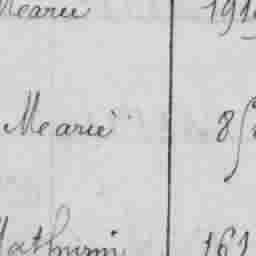 Mearie 191
Mearie 8
Mathurin 161